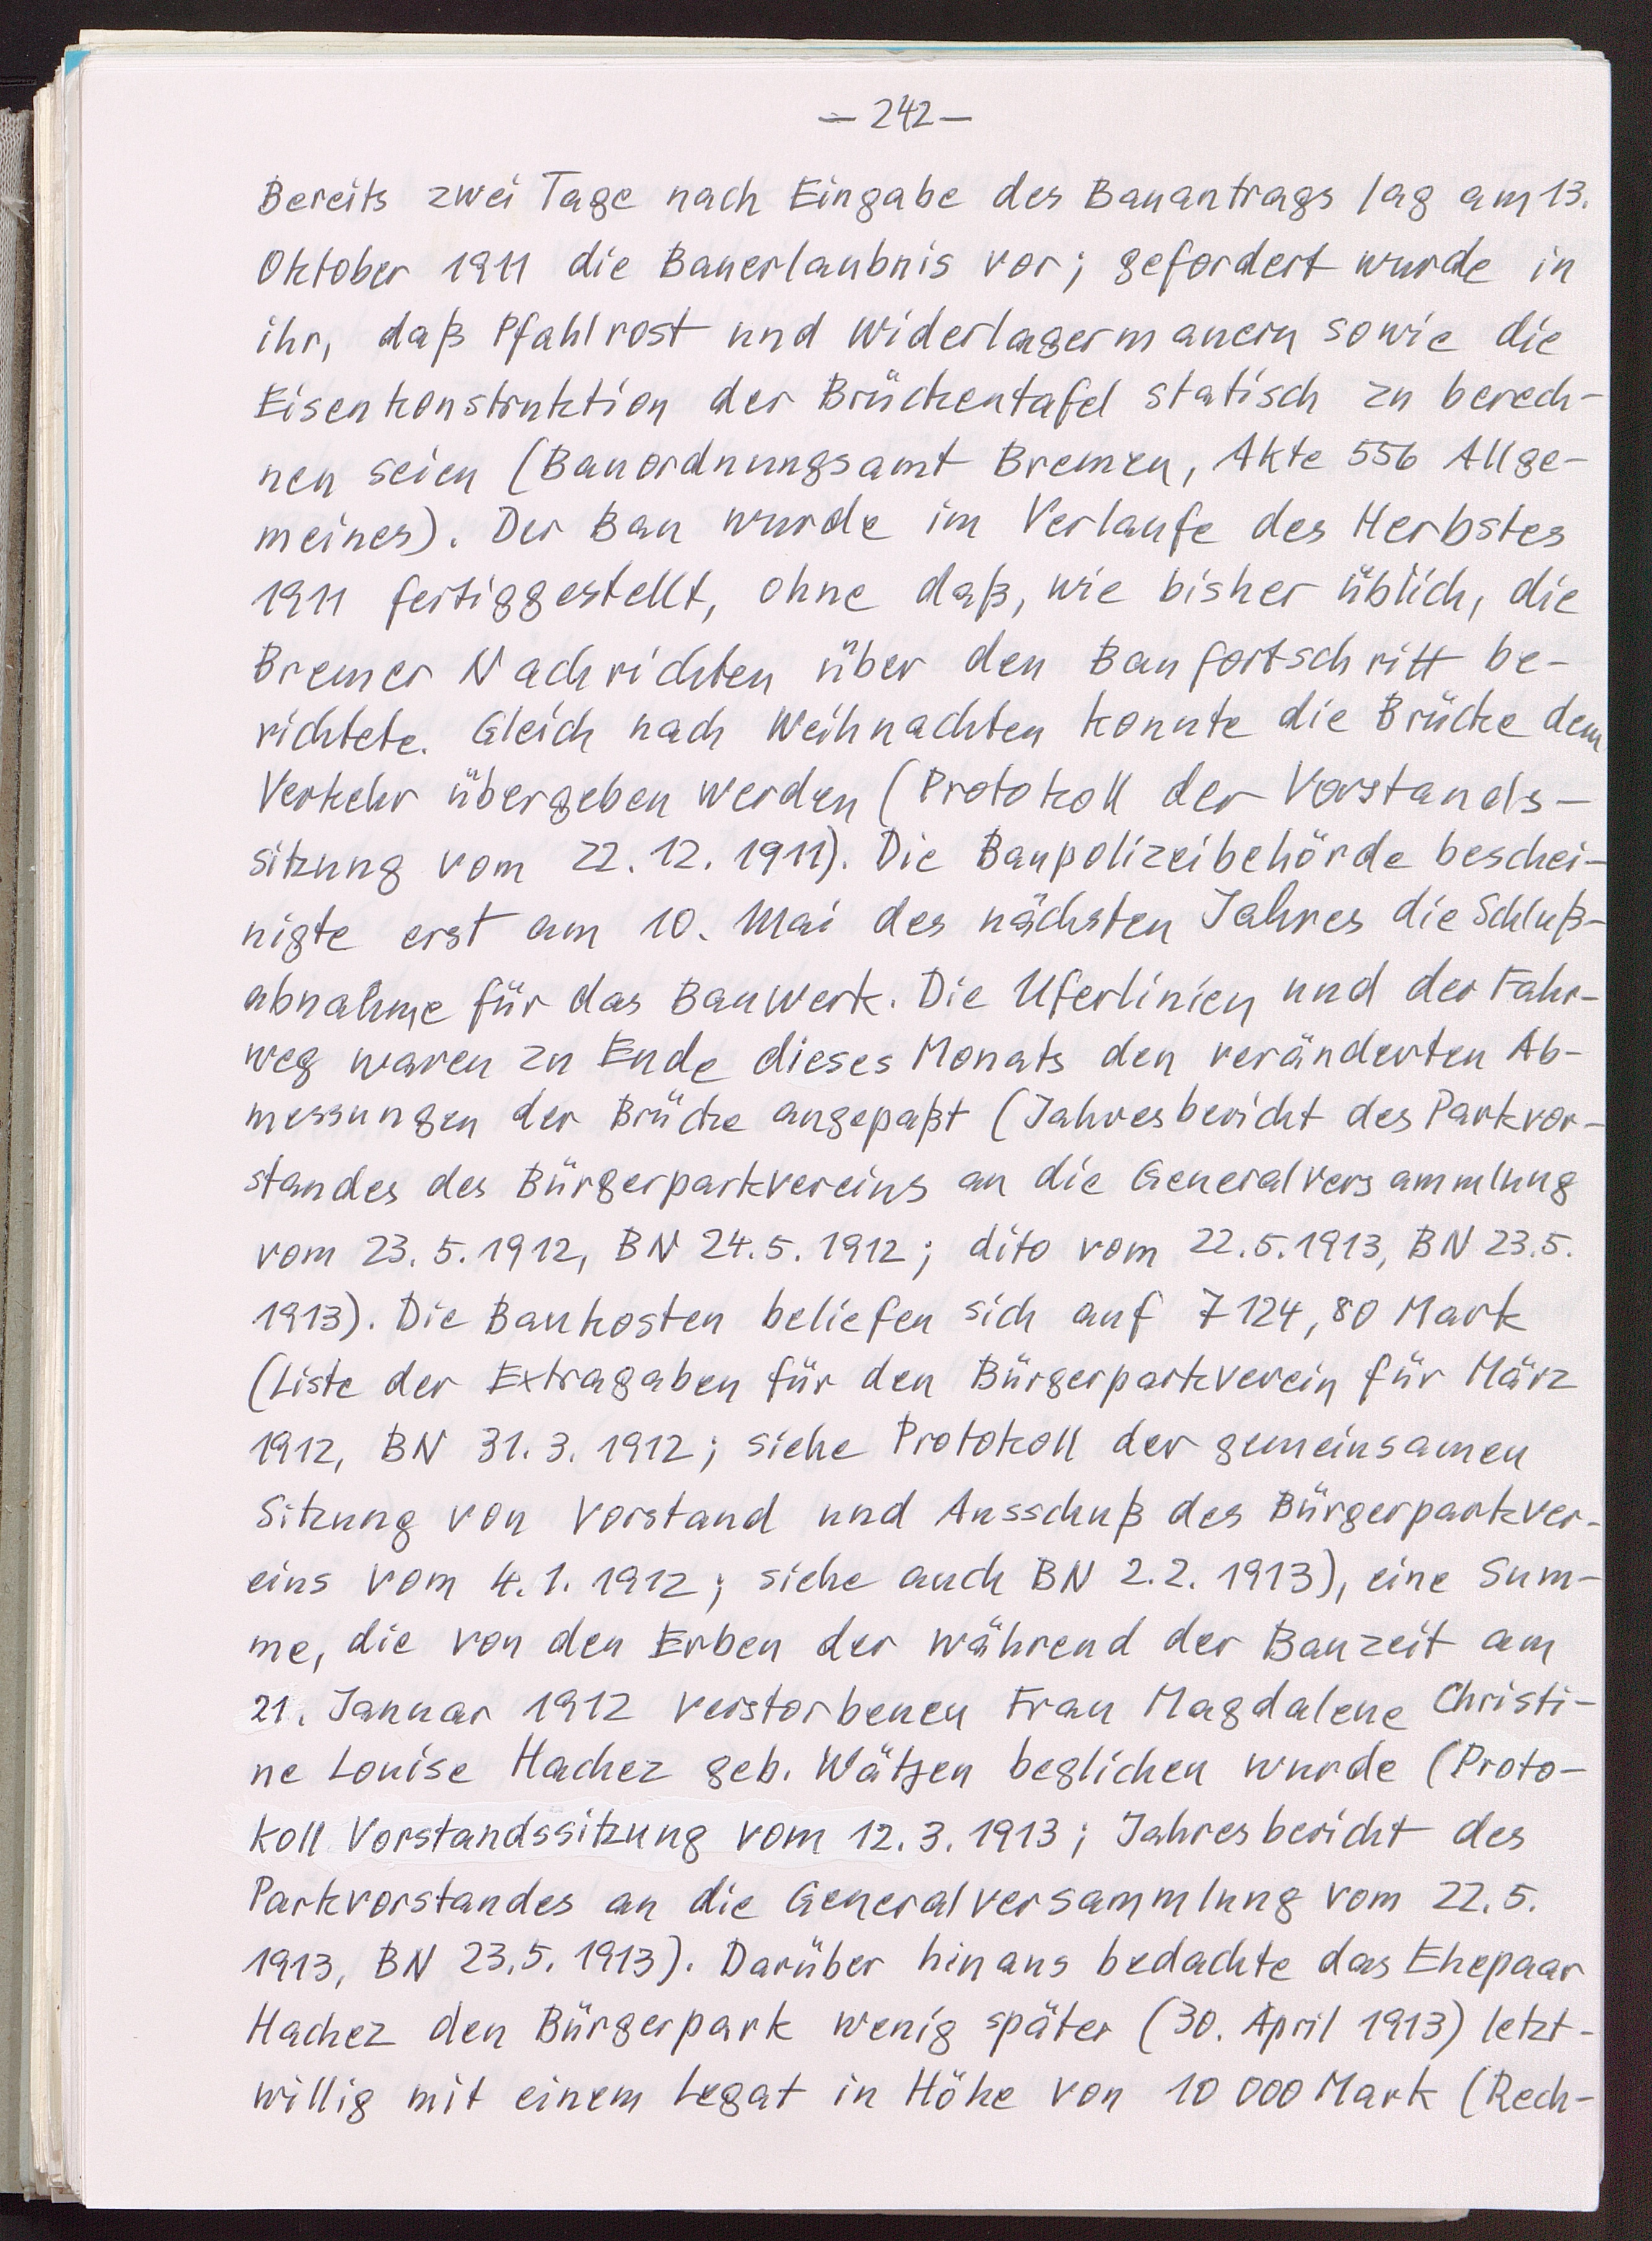 — 242 —
Bereits zwei Tage nach Eingabe des Bauantrags lag am 13.
Oktober 1911 die Bauerlaubnis vor; gefordert wurde in
ihr, daß Pfahlrost und Widerlagermauern sowie die
Eisenkonstruktion der Brückentafel statisch zu berech-
nen seien (Bauordnungsamt Bremen, Akte 556 Allge-
meines). Der Bau wurde im Verlaufe des Herbstes
1911 fertiggestellt, ohne daß, wie bisher üblich, die
Bremer Nachrichten über den Baufortschritt be-
richtete. Gleich nach Weihnachten konnte die Brücke dem
Verkehr übergeben werden (Protokoll der Vorstands-
sitzung vom 22.12.1911). Die Baupolizeibehörde beschei-
nigte erst am 10. Mai des nächsten Jahres die Schluß-
abnahme für das Bauwerk. Die Uferlinien und der Fahr-
weg waren zu Ende dieses Monats den veränderten Ab-
messungen der Brücke angepaßt (Jahresbericht des Parkvor-
standes des Bürgerparkvereins an die Generalversammlung
vom 23.5.1912, BN 24.5.1912; dito vom 22.5.1913, BN 23.5.
1913). Die Baukosten beliefen sich auf 7124,80 Mark
(Liste der Extragaben für den Bürgerparkverein für März
1912, BN 31.3.1912; siehe Protokoll der gemeinsamen
Sitzung von Vorstand und Ausschuß des Bürgerparkver-
eins vom 4.1.1912; siehe auch BN 2.2.1913), eine Sum-
me, die von den Erben der während der Bauzeit am
21. Januar 1912 verstorbenen Frau Magdalene Christi-
ne Louise Hachez geb. Wätjen beglichen wurde (Proto-
koll Vorstandssitzung vom 12.3.1913; Jahresbericht des
Parkvorstandes an die Generalversammlung vom 22.5.
1913, BN 23.5.1913). Darüber hinaus bedachte das Ehepaar
Hachez den Bürgerpark wenig später (30. April 1913) letzt-
willig mit einem Legat in Höhe von 10 000 Mark (Rech-